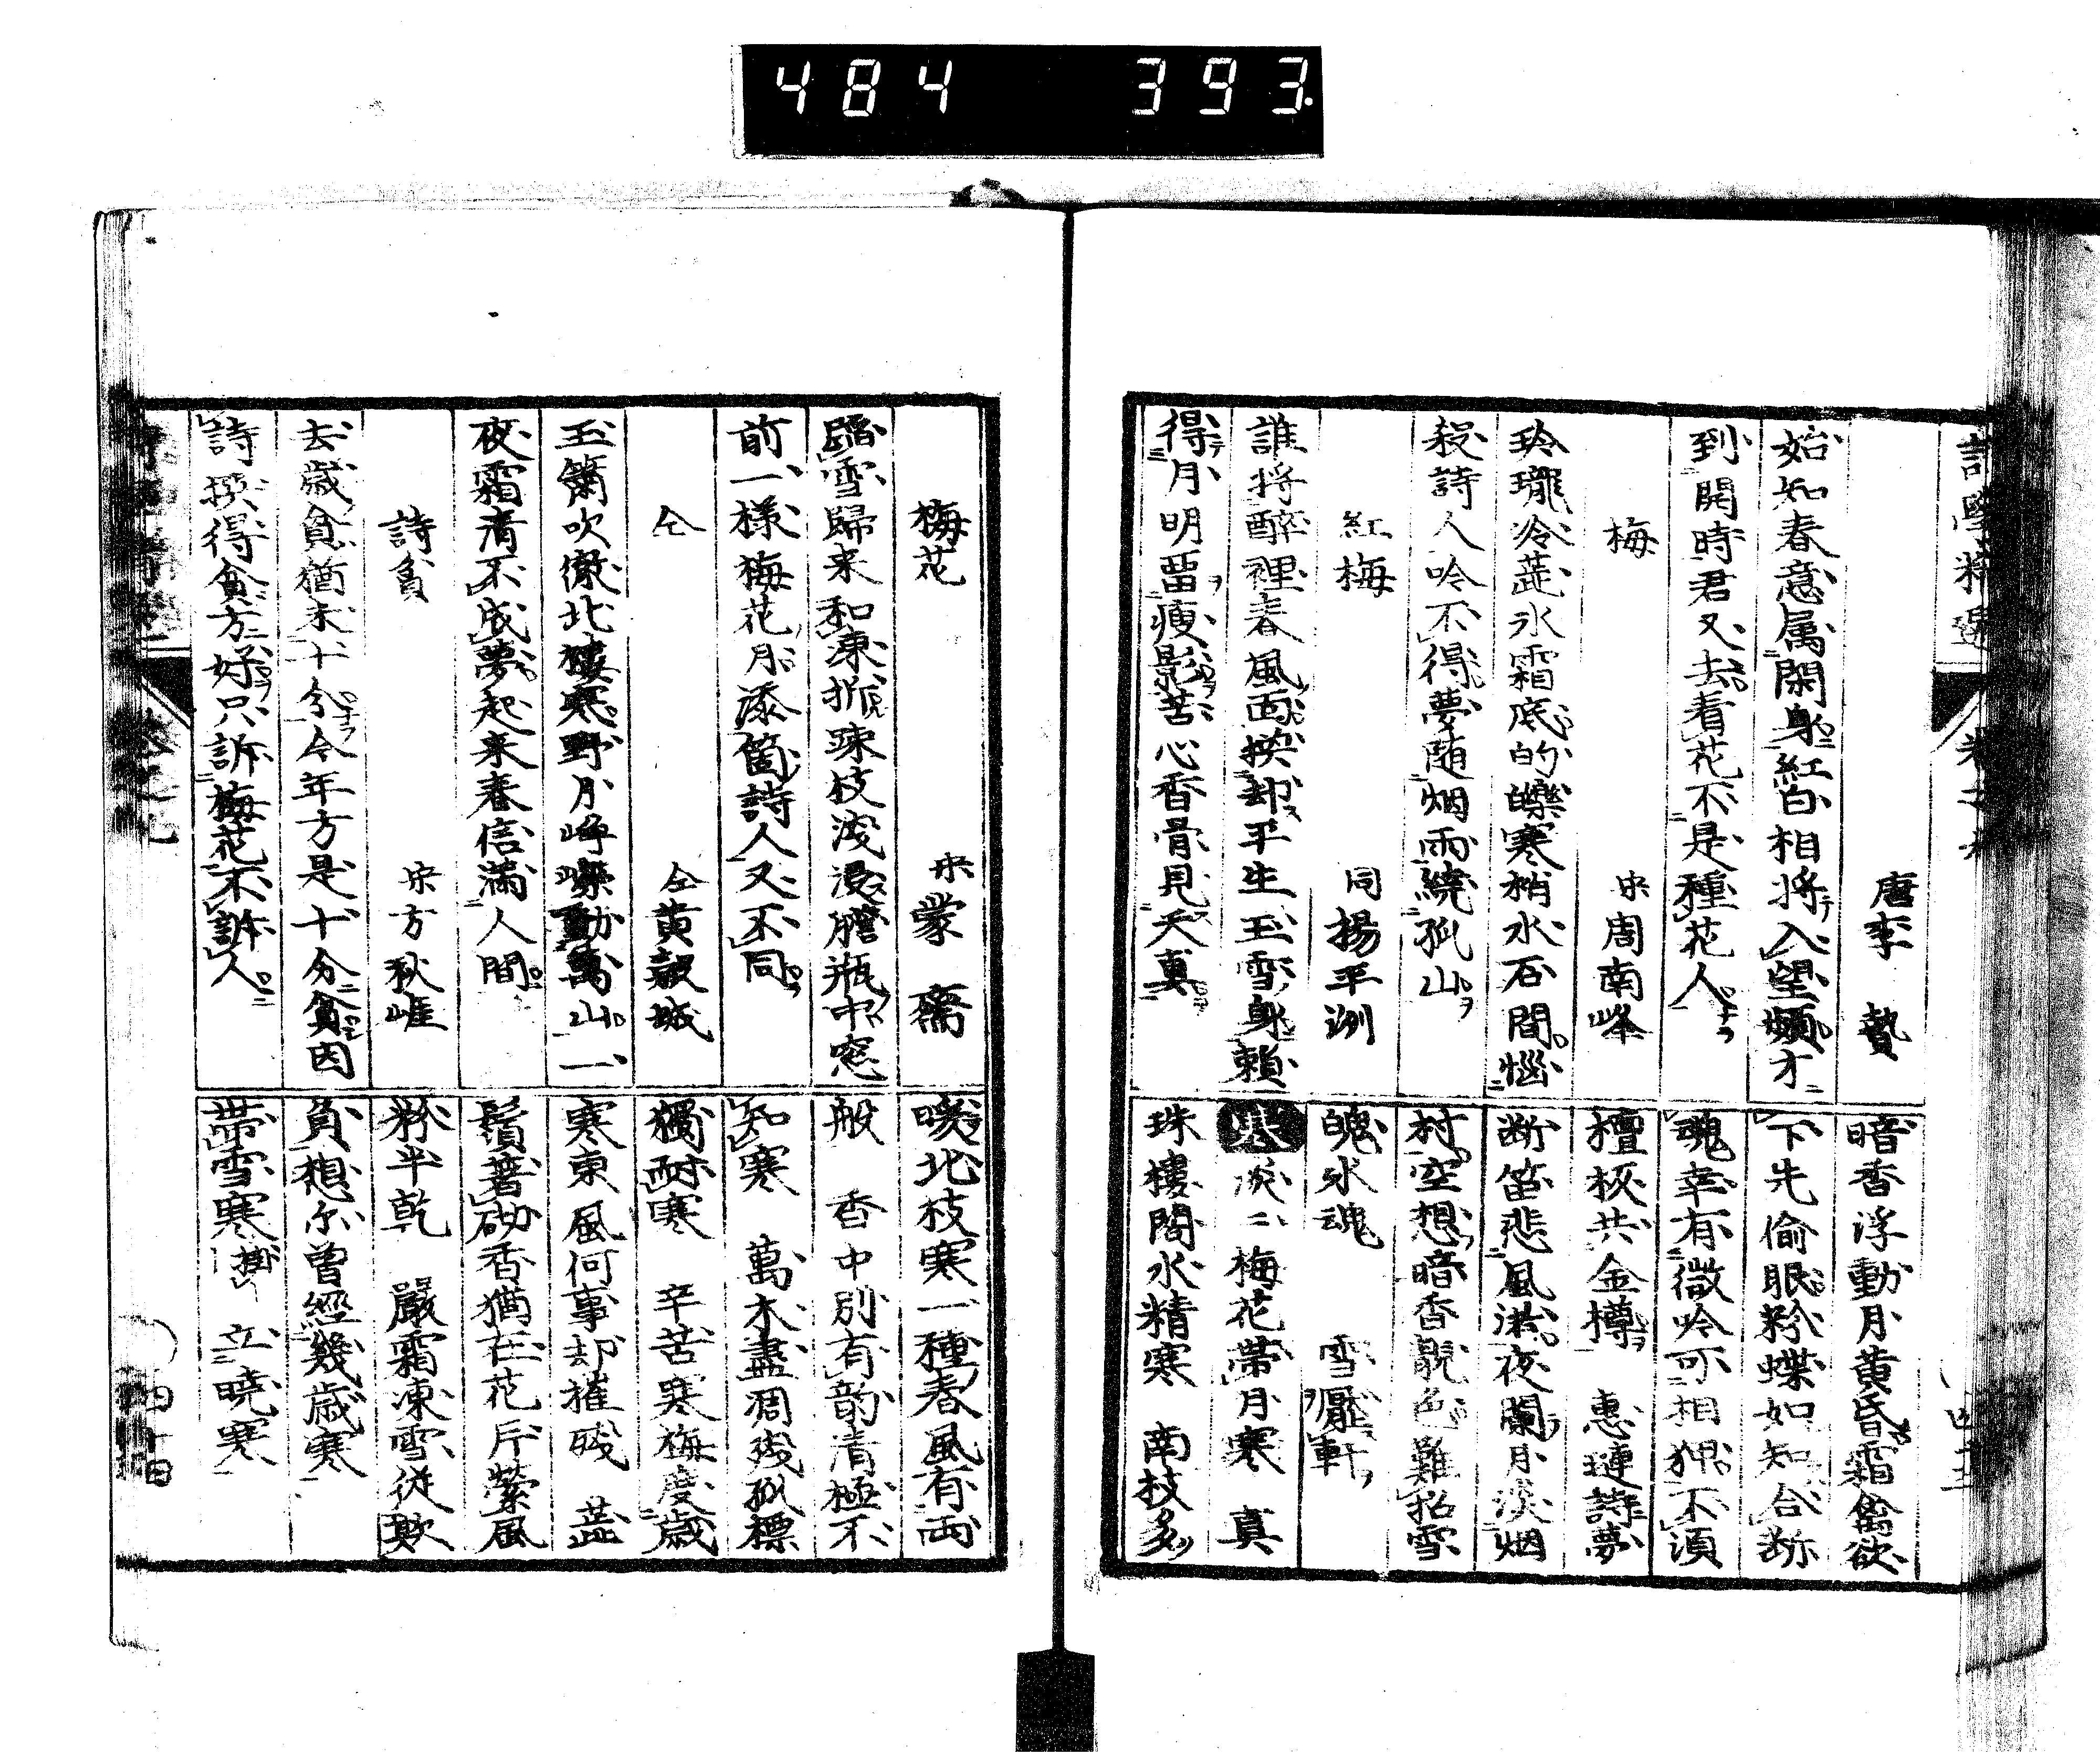 484 393.
唐李 贄
始知春意属閑身紅白相將入望頻才
到開時君又去看花不是種花人
梅 宋周南峰
玲瓏冷蕋氷霜底的皪寒梢水石間惱
殺詩人吟不得夢随烟雨繞孤山
紅梅 同楊平洲
誰将醉裡春風面换却平生玉雪身賴
得月明留瘦影苦心香骨見天真
暗香浮動月黄昏霜禽欲
下先偷眼粉蝶如知合断
魂幸有微吟可相狎不須
檀板共金樽 惠連詩夢
断笛悲風淡夜闌月淡烟
村空想暗香親色難招雪
魄氷魂 雪壓軒
寒 淡〻梅花帶月寒 真
珠樓閣水精寒 南枝多
梅花 宋蒙齋
踏雪歸来和凍折疎枝浅浸膽瓶中窓
前一様梅花月添箇詩人又不同
仝 仝黄毅城
玉簫吹徹北樓寒野月崢嶸動萬山一
夜霜清不成夢起来春信満人間
詩貧 宋方秋崖
去歲貧猶未十分今年方是十分貧因
詩撰得貧方好只訴梅花不訴人
暖北枝寒一種春風有両
般 香中別有韵清極不
知寒 萬木盡凋残孤標
獨耐寒 辛苦寒梅度歳
寒東風何事却摧残 蕋
鬚著砌香猶在花片縈風
粉半乾 嚴霜凍雪従欺
負想尓曽經幾歳寒
帯雪寒 掛 立曉寒
四十四